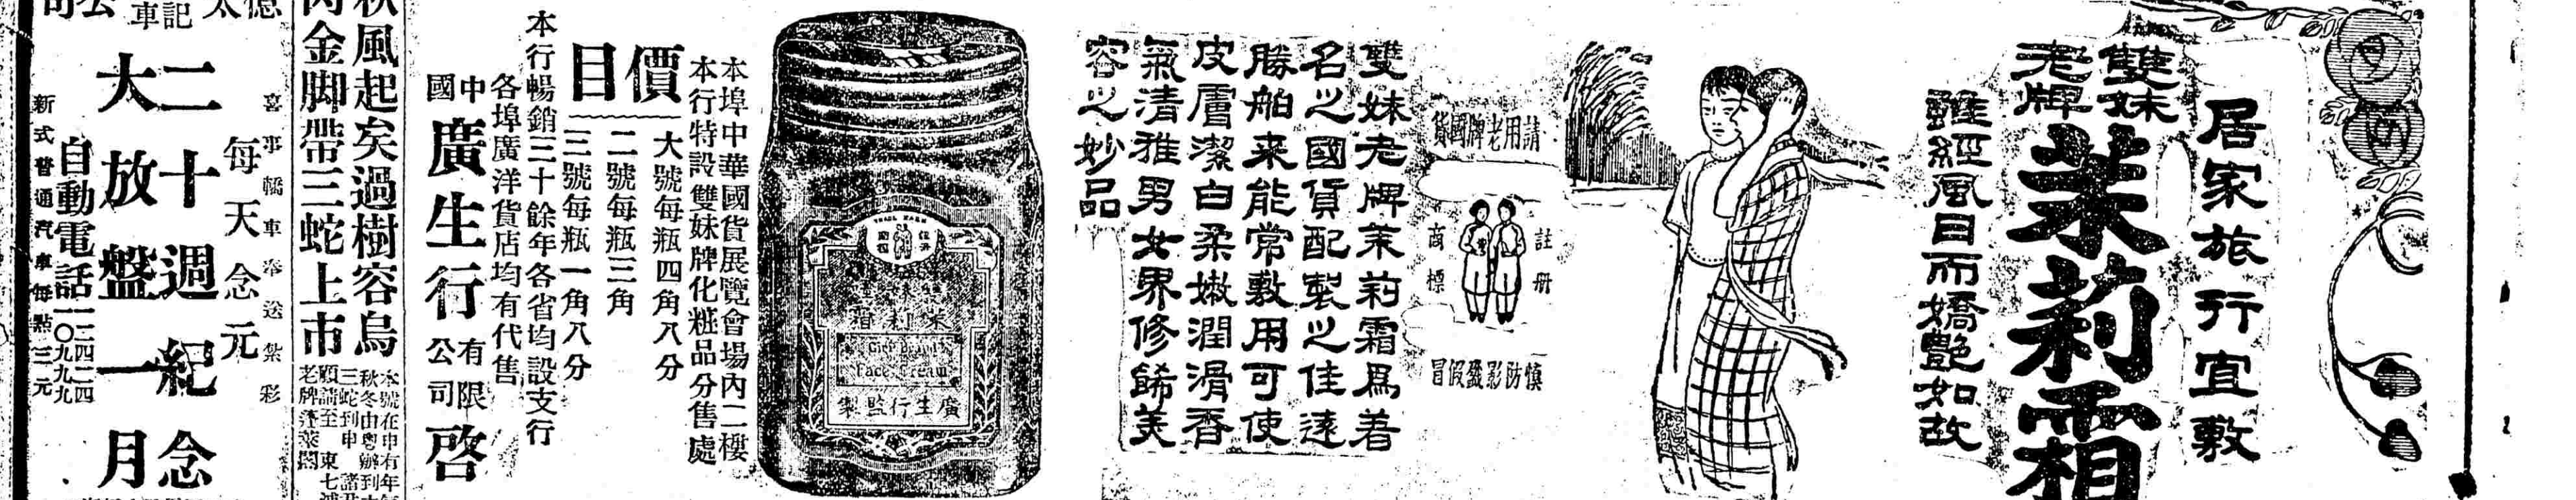 居家旅行宜敷
雙妹
老牌
茉莉霜
雖經風日而嬌艷如故
請用老牌國貨
註册
商標
慎防影戤假冒
雙妹老牌茉莉霜爲著
名之國貨配製之佳遠
勝舶来能常敷用可使
皮膚潔白柔嫩潤滑香
氣清雅男女界修飾美
容之妙品
TRADE MARK
茉莉霜
Girl Brand
Face Cream
廣生行監製
本埠中華國貨展覽會場內二樓
本行特設雙妹牌化粧品分售處
價目
大號每瓶四角八分
二號每瓶三角
三號每瓶一角八分
本行暢銷三十餘年各省均設支行
各埠廣洋貨店均有代售
中國廣生行有限公司啓
秋風起矣過樹容烏
肉金脚帶三蛇上市
本號在申有年每
秋冬由粵辦到
三蛇到申 諸君
顧請至 東七浦
老牌蓬萊閣
喜事轎車奉送紮彩
每天念元
二十週紀念
大放盤一月
自動電話一二四二四
一〇九九九
新式普通汽車每點三元